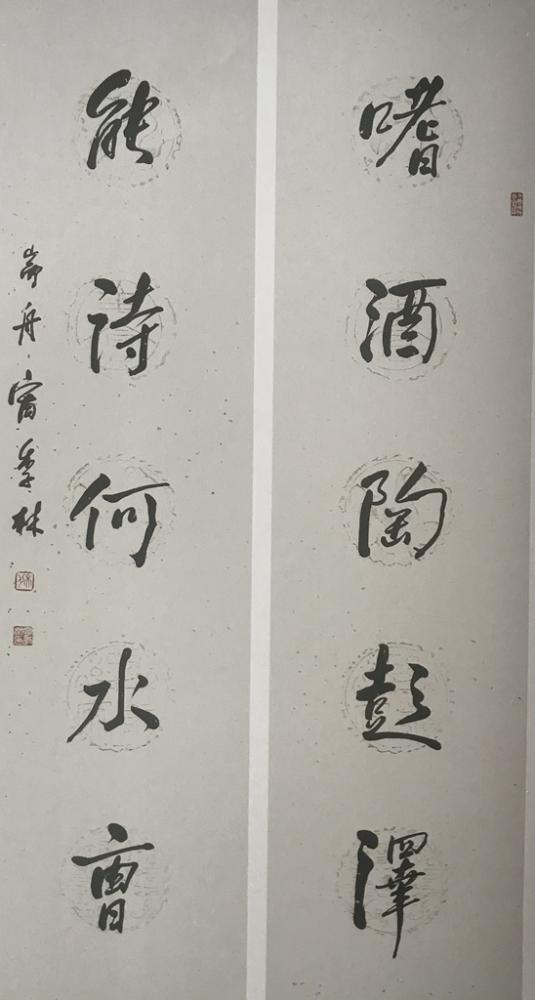 嗜酒陶彭澤
能詩何水曹
舟甯季林